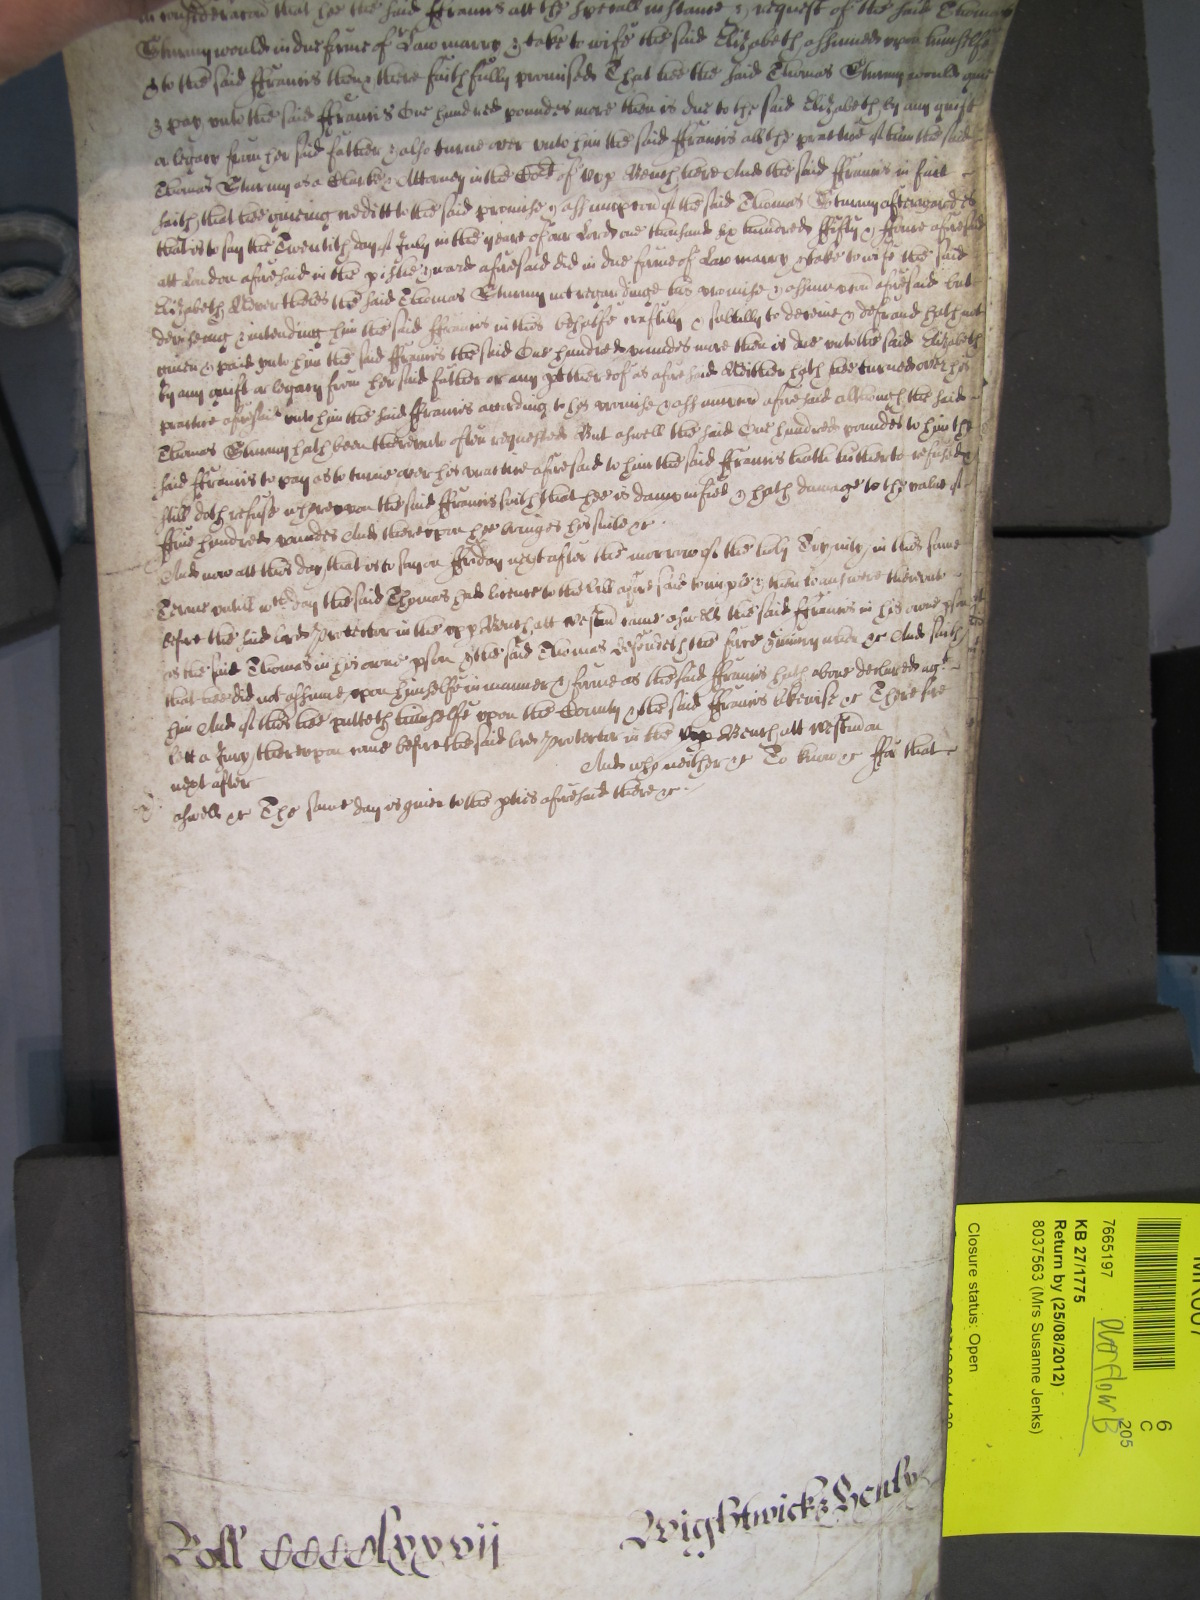 in consideracon that hee the said ffrancis att the speciall instance & request of the said Thomas
Sturmy would in due forme of Law marry & take to wife the said Elizabeth assumed upon himselfe
& to the said ffrancis then & there faithfully promised That hee the said Thomas Sturmy would give
& pay unto the said ffrancis One hundred poundes more then is due to the said Elizabeth by any guift
or legacy from her said father & also turne over unto him the said ffrancis all the practice of him the said
Thomas Sturmy as a Clarke & Attorney in the Cort of Upp Bench here And the said ffrancis in fact
saith that hee giveing creditt to the said promise & assumpcon of the said Thomas Sturmy afterwardes
that is to say the Twentith day of July in the yeare of our Lord one thousand six hundred ffifty & ffoure aforesaid
att London aforesaid in the pishe & ward aforesaid did in due forme of Law marry & take to wife the said
Elizabeth Neverthelesse the said Thomas Sturmy not regardinge his promise & assumpcon aforesaid but
deviseing & intending him the said ffrancis in this behalfe craftily & subtilly to deceive & defraud hath not
given & paid unto him the said ffrancis the said One hundred poundes more then is due unto the said Elizabeth
by any guift or legacy from her said father or any pt thereof as aforesaid Neither hath hee turned over his
practice aforesaid unto him the said ffrancis according to his promise & assumpcon aforesaid although the said
Thomas Sturmy hath been thereunto often requested But aswell the said One hundred poundes to him the
said ffrancis to pay as to turne over his practice aforesaid to him the said ffrancis hath hitherto refused &
still doth refuse whereupon the said ffrancis saith that hee is dampnified & hath damage to the value of
ffive hundred poundes And thereupon hee bringes his suite &c
And now att this day that is to say on ffriday next after the morrow of the holy Trynity in this same
Terme untill wch day the said Thomas had licence to the bill aforesaid to imple & then to answere thereunto
before the said lord Protector in the upp Bench att Westm came aswell the said ffrancis in his owne pson
as the said Thomas in his owne pson & the said Thomas defendeth the force & iniury when &c And saith
that hee did not assume upon himselfe in manner & forme as the said ffrancis hath above declared agt
him And of this hee putteth himselfe upon the County & the said ffrancis likewise &c Therefore
lett a Jury thereupon come before the said lord Protector in the upp Bench att Westm on
next after And who neither &c To know &c ffor that
aswell &c The same day is given to the pties aforesaid there &c
Roll CCCClxxvii
Wightwick & Henly
7665197
KB 27/1775
Return by (25/08/2012)
8037563 (Mrs Susanne Jenks)
Closure status: Open
Overflow B
6
C
205